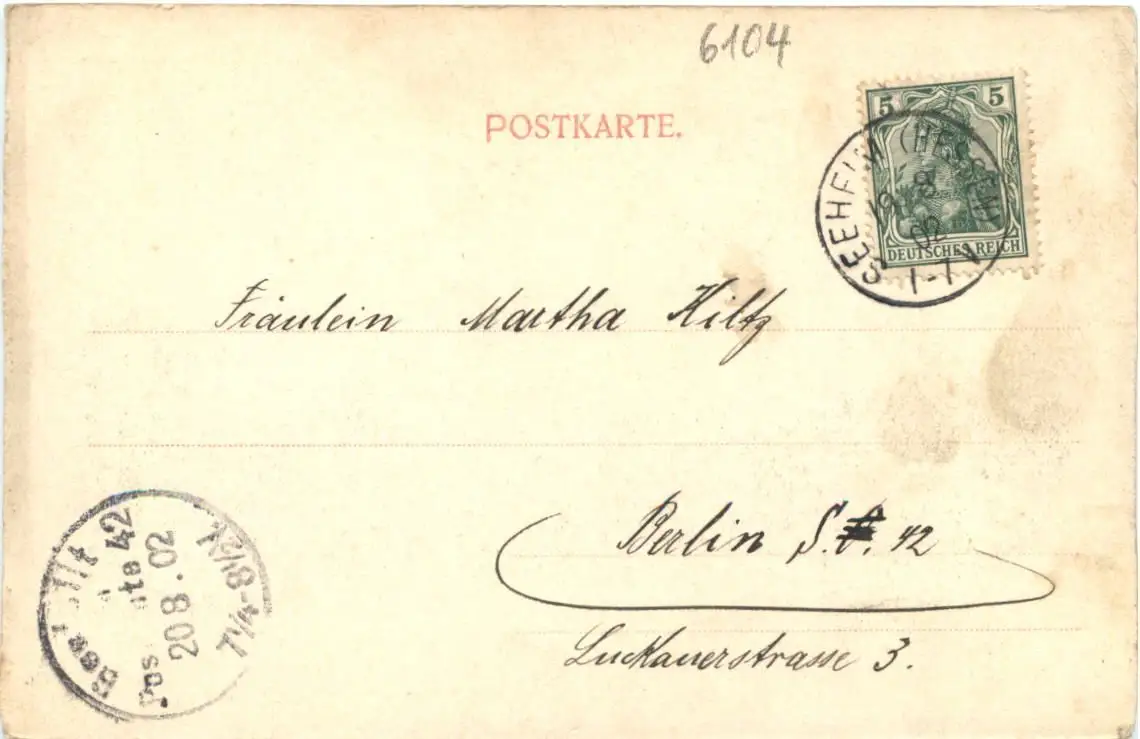 6104
POSTKARTE.
5 5
DEUTSCHES REICH
SEEHEIM (HESSEN)
19 8
02
1-7N
Fräulein Martha Hiltz
Berlin S. 42
Luckauerstrasse 3.
42
20 8. 02
7¼-8½